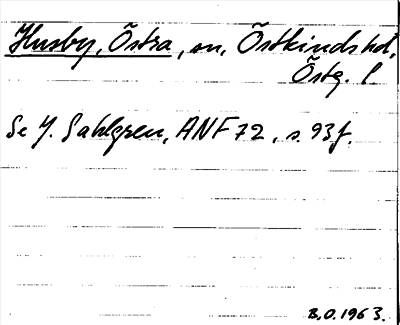 Husby, Östra, sn, Östkinds hd,
Östg. l.
Se J. Sahlgren, ANF 72, s. 93 f.
B.O. 1963.